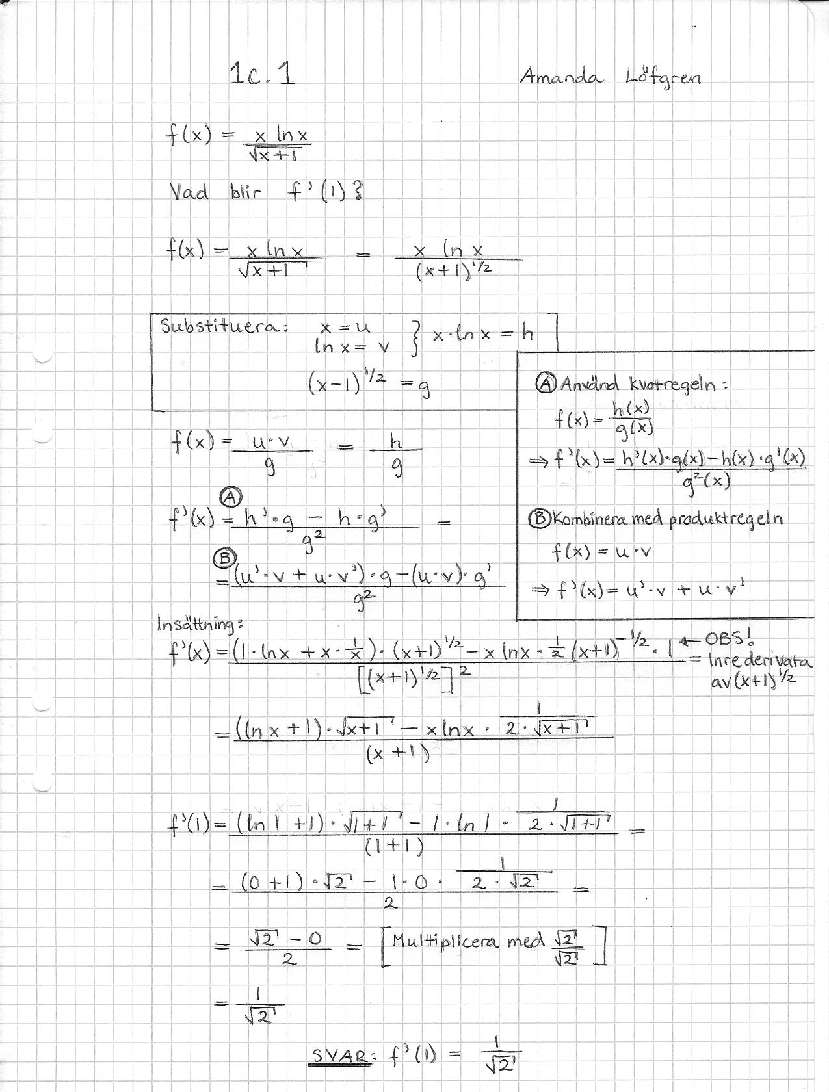 1c.1
Amanda Löfgren
f(x) = x ln x / √x+1
Vad blir f'(1)?
f(x) = x ln x / √x+1 = x ln x / (x+1)^1/2
Substituera: x = u
ln x = v } x·ln x = h
(x-1)^1/2 = g
f(x) = u·v / g = h / g
f'(x) = h'·g - h·g' / g² =
(A)
(B)
= (u'·v + u·v')·g-(u·v)·g' / g²
(A) Använd kvotregeln:
f(x) = h(x) / g(x)
⇒ f'(x) = h'(x)·g(x)-h(x)·g'(x) / g²(x)
(B) Kombinera med produktregeln
f(x) = u·v
⇒ f'(x) = u'·v + u·v'
Insättning:
f'(x) = (1·lnx + x·1/x)·(x+1)^1/2 - x lnx·1/2 (x+1)^-1/2 · 1 / [(x+1)^1/2]² =
← OBS!
Inre derivata
av (x+1)^1/2
= ((ln x + 1)·√x+1 - x ln x · 1 / 2·√x+1 / (x+1)
f'(1) = (ln 1 + 1)·√1+1 - 1·ln 1 · 1 / 2·√1+1 / (1+1) =
= (0+1)·√2 - 1·0 · 1 / 2·√2 / 2 =
= √2 - 0 / 2 = [Multiplicera med √2 / √2]
= 1 / √2
SVAR: f'(1) = 1 / √2